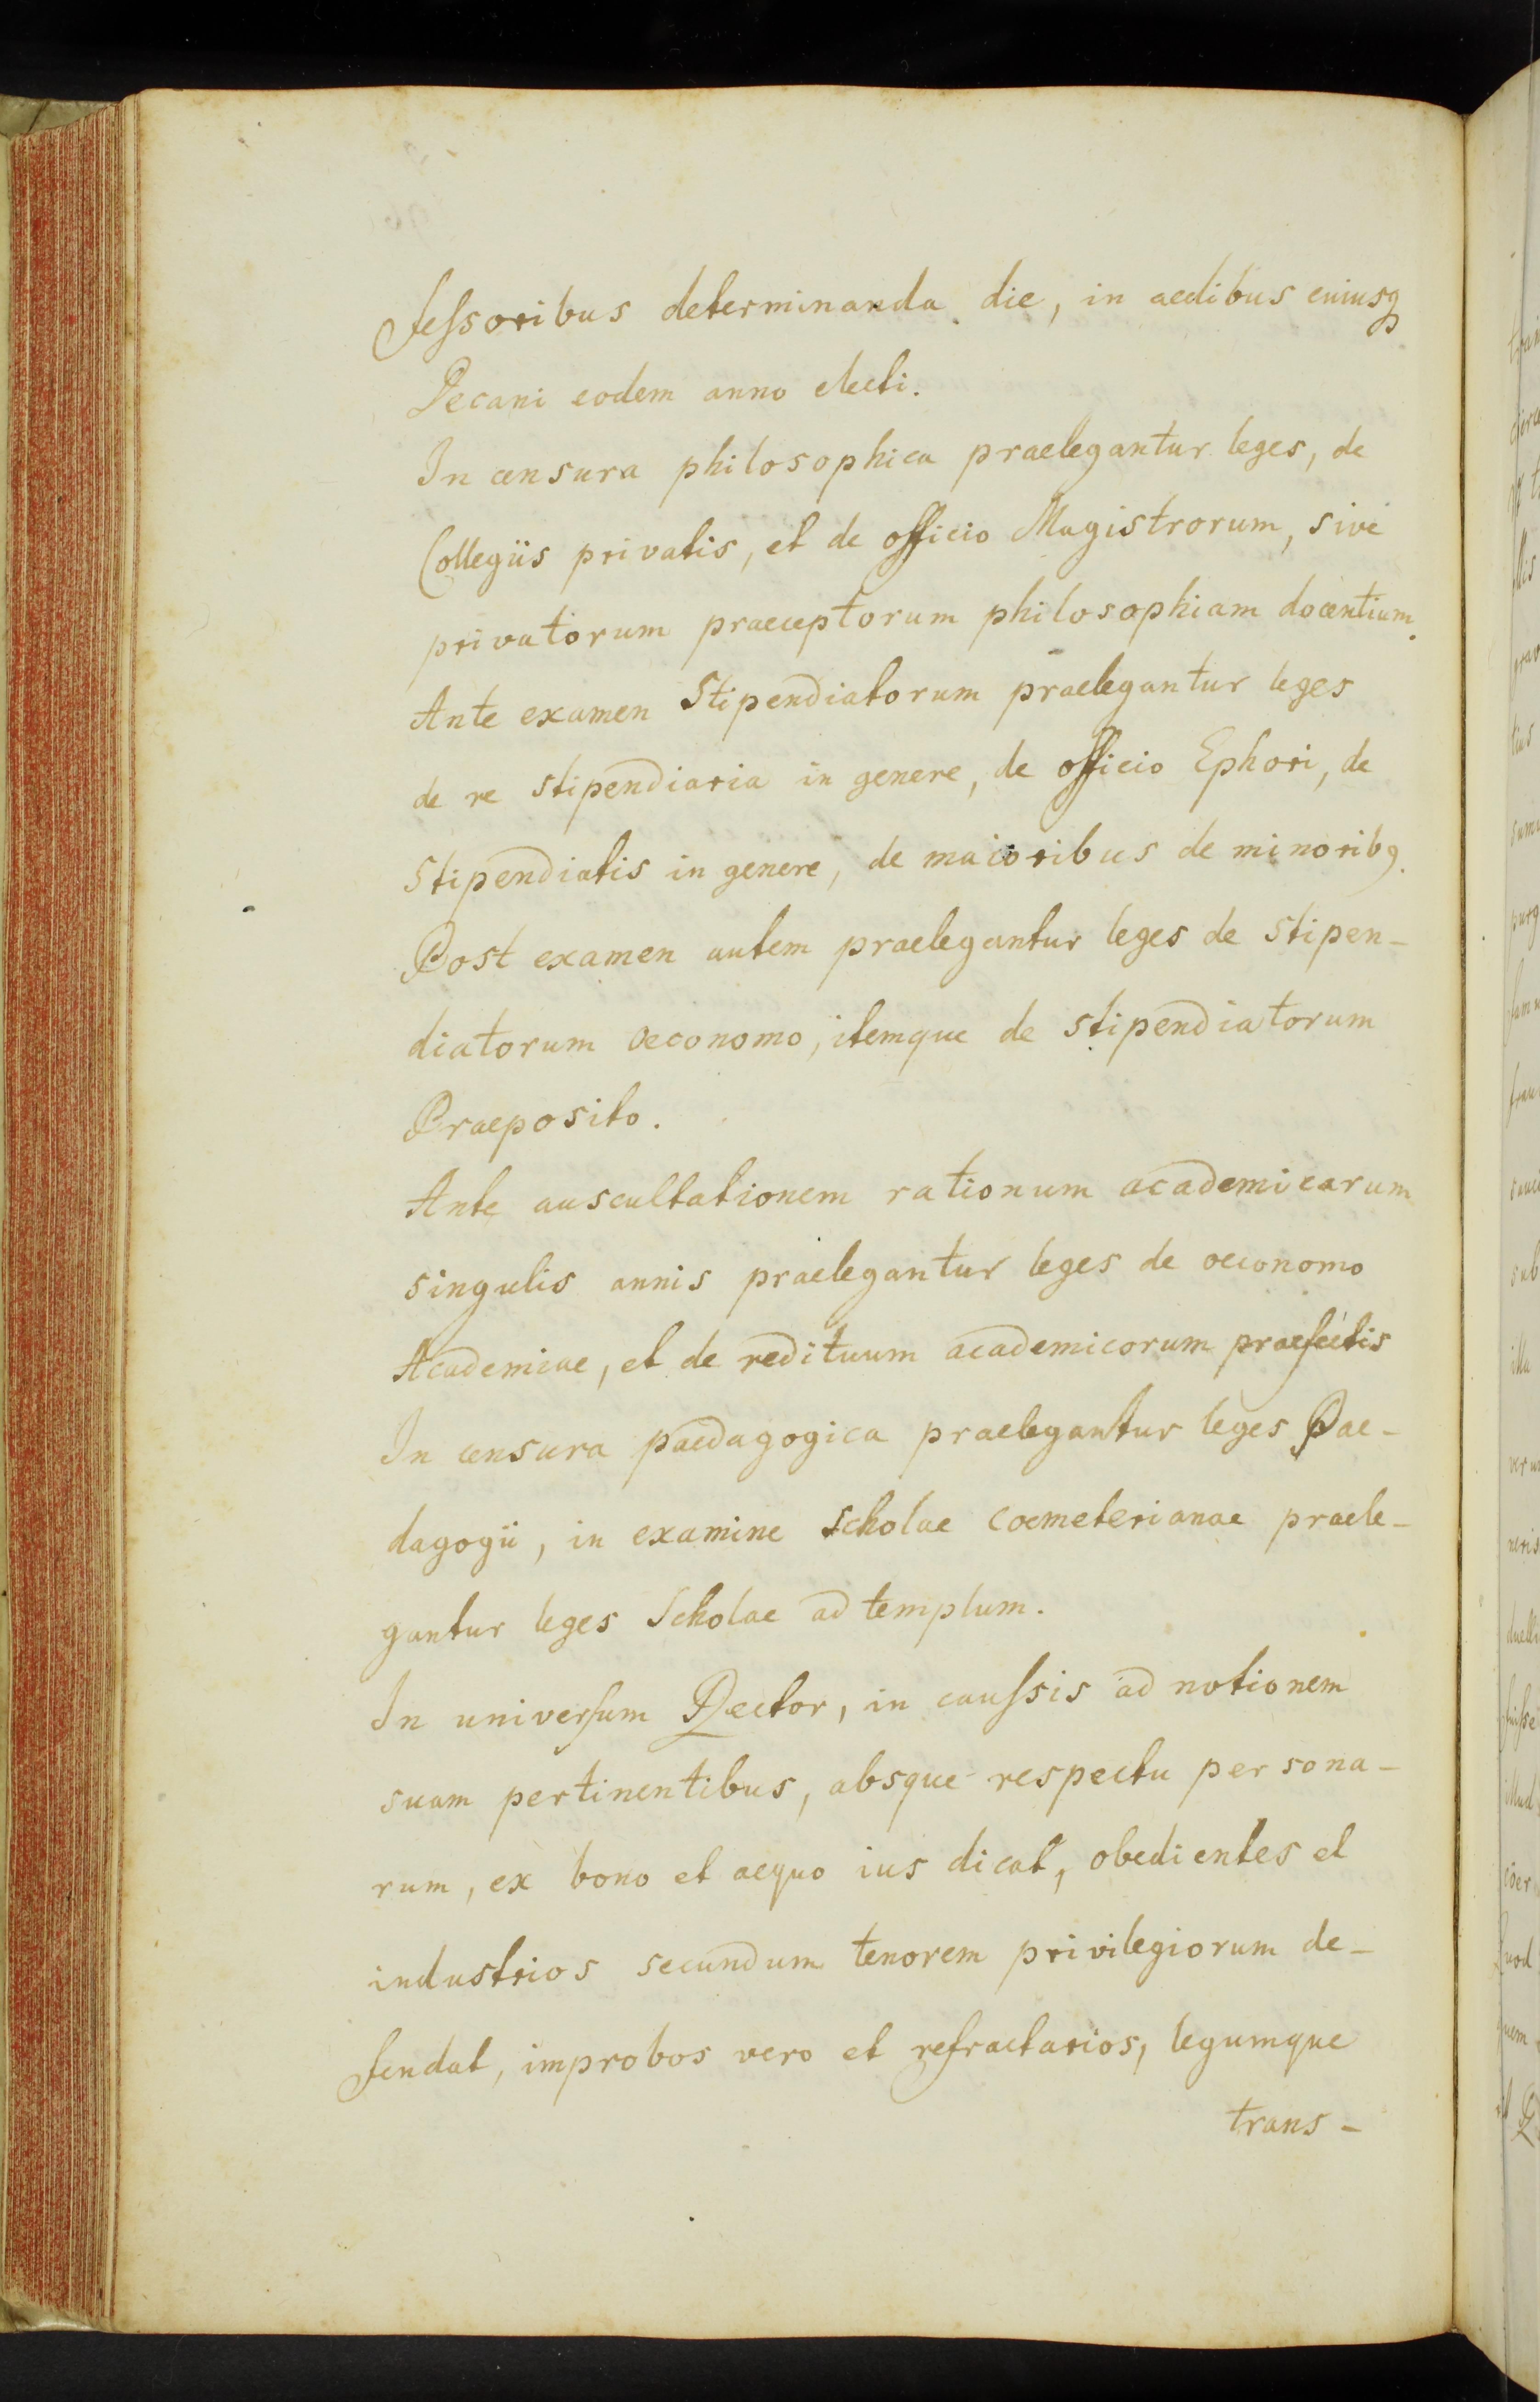 feſsoribus determinanda die, in aedibus cuiusq
Decani eodem anno electi.
In censura philosophica praelegantur leges, de
Collegiis privatis, et de officio Magistrorum, sive
privatorum praeceptorum philosophiam docentium.
Ante examen Stipendiatorum praelegantur leges
de re stipendiaria in genere, de officio Ephori, de
Stipendiatis in genere, de maioribus de minorib9.
Post examen autem praelegantur leges de Stipen-
diatorum oeconomo, itemque de stipendiatorum
Praeposito.
Ante auscultationem rationum academicarum
singulis annis praelegantur leges de oeconomo
Academiae, et de redituum academicorum praefectis
In censura paedagogica praelegantur leges Pae-
dagogii, in examine scholae coemeterianae praele-
gantur leges Scholae ad templum.
In univerſum Rector, in cauſsis ad notionem
suam pertinentibus, absque respectu persona-
rum, ex bono et aequo ius dicat, obedientes et
industrios secundum tenorem privilegiorum de-
fendat, improbos vero et refractarios, legumque
trans-